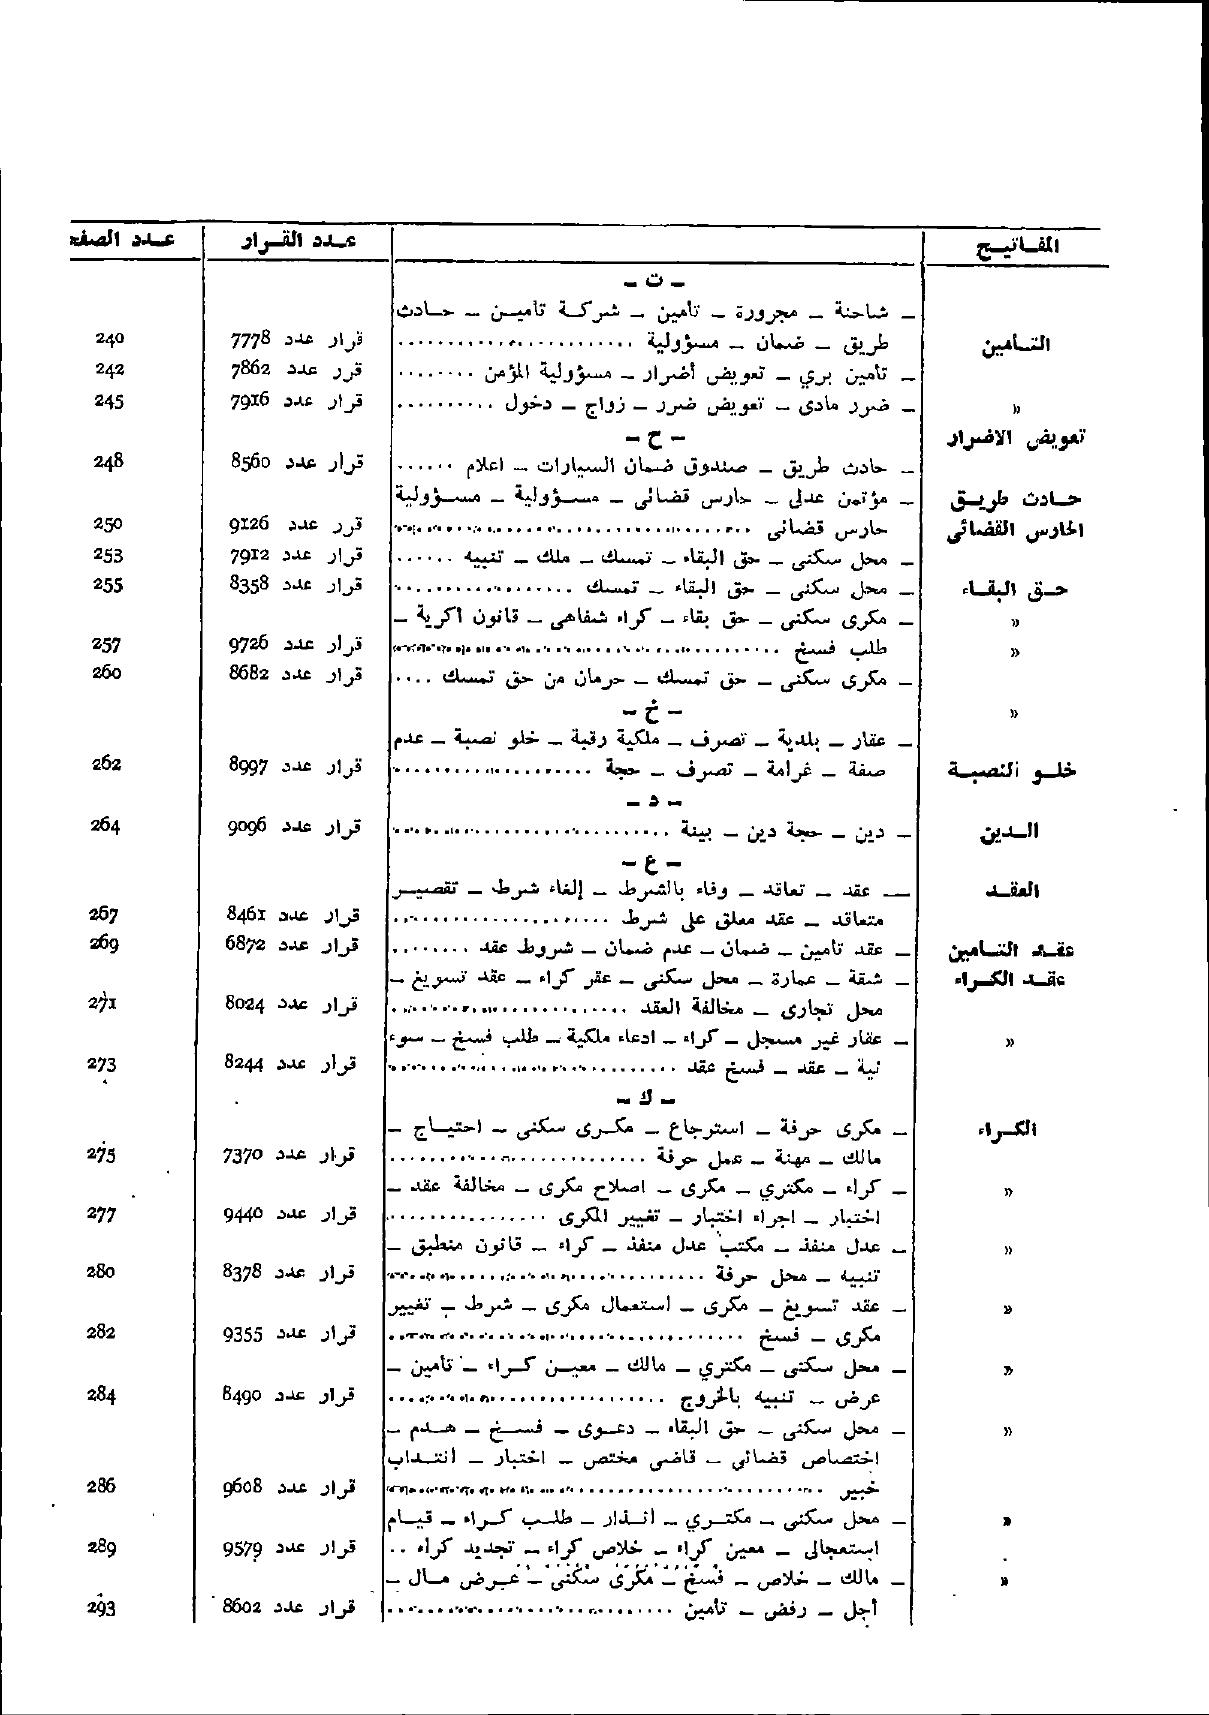 المفاتيح عدد القرار عدد الصفح
- ت -
- شاحنة - مجرورة - تأمين - شركة تأمين - حادث
التامين طريق - ضمان - مسؤولية .......... قرار عدد 7778 240
- تأمين بري - تعويض أضرار - مسؤولية المؤمن ........ قرر عدد 7862 242
» - ضرر مادي - تعويض ضرر - زواج - دخول .......... قرار عدد 7916 245
تعويض الاضرار - ح -
- حادث طريق - صندوق ضمان السيارات - اعلام ...... قرار عدد 8560 248
حادث طريق - مؤتمن عدلى - حارس قضائى - مسؤولية - مسؤولية
الحارس القضائى حارس قضائى .......... قرر عدد 9126 250
- محل سكنى - حق البقاء - تمسك - ملك - تنبيه ...... قرار عدد 7912 253
حق البقاء - محل سكنى - حق البقاء - تمسك .......... قرار عدد 8358 255
» - مكرى سكنى - حق بقاء - كراء شفاهى - قانون اكرية -
» طلب فسخ .......... قرار عدد 9726 257
- مكرى سكنى - حق تمسك - حرمان من حق تمسك .... قرار عدد 8682 260
» - خ -
- عقار - بلدية - تصرف - ملكية رقبة - خلو نصبة - عدم
خلو النصبة صفة - غرامة - تصرف - حجة .......... قرار عدد 8997 262
- د -
الدين - دين - حجة دين - بينة .......... قرار عدد 9096 264
- ع -
العقد - عقد - تعاقد - وفاء بالشرط - إلغاء شرط - تقصير
متعاقد - عقد معلق على شرط .......... قرار عدد 8461 267
عقد التامين - عقد تامين - ضمان - عدم ضمان - شروط عقد ........ قرار عدد 6872 269
عقد الكراء - شقة - عمارة - محل سكنى - عقر كراء - عقد تسويغ -
محل تجارى - مخالفة العقد .......... قرار عدد 8024 271
» - عقار غير مسجل - كراء - ادعاء ملكية - طلب فسخ - سوء
نية - عقد - فسخ عقد .......... قرار عدد 8244 273
- ك -
الكراء - مكرى حرفة - استرجاع - مكرى سكنى - احتياج -
مالك - مهنة - عمل حرفة .......... قرار عدد 7370 275
» - كراء - مكتري - مكرى - اصلاح مكرى - مخالفة عقد -
اختبار - اجراء اختبار - تغيير المكرى .......... قرار عدد 9440 277
» - عدل منفذ - مكتب عدل منفذ - كراء - قانون منطبق -
تنبيه - محل حرفة .......... قرار عدد 8378 280
» - عقد تسويغ - مكرى - استعمال مكرى - شرط - تغيير
مكرى - فسخ .......... قرار عدد 9355 282
» - محل سكنى - مكتري - مالك - معين كراء - تامين -
عرض - تنبيه بالخروج .......... قرار عدد 8490 284
» - محل سكنى - حق البقاء - دعوى - فسخ - هدم -
اختصاص قضائى - قاضى مختص - اختبار - انتداب
خبير .......... قرار عدد 9608 286
» - محل سكنى - مكتري - انذار - طلب كراء - قيام
استعجالى - معين كراء - خلاص كراء - تجديد كراء .. قرار عدد 9579 289
» - مالك - خلاص - فسخ - مكرى سكنى - عرض مال -
أجل - رفض - تأمين .......... قرار عدد 8602 293